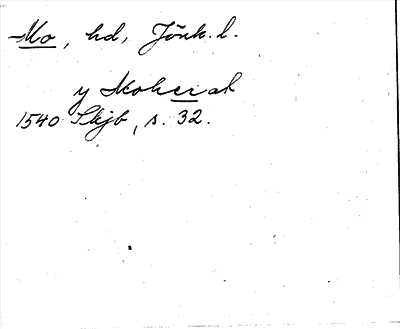 Mo, hd, Jönk. l.
y Moherad
1540 Skjb, s. 32.